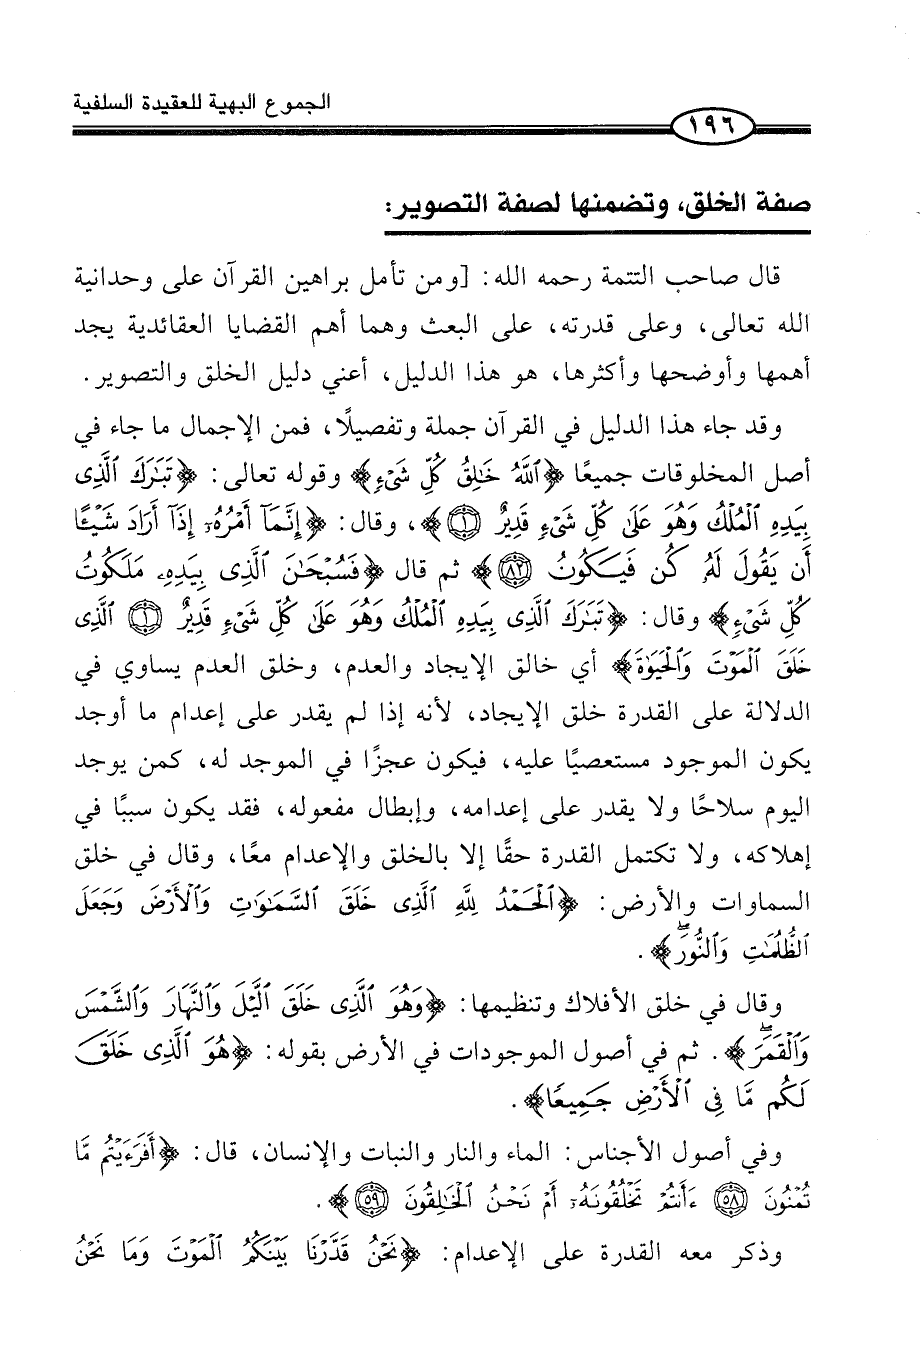 الجموع البهية للعقيدة السلفية
١٩٦
صفة الخلق، وتضمنها لصفة التصوير:
قال صاحب التتمة رحمه الله: [ومن تأمل براهين القرآن على وحدانية
الله تعالى، وعلى قدرته، على البعث وهما أهم القضايا العقائدية يجد
أهمها وأوضحها وأكثرها، هو هذا الدليل، أعني دليل الخلق والتصوير.
وقد جاء هذا الدليل في القرآن جملة وتفصيلًا، فمن الإجمال ما جاء في
أصل المخلوقات جميعًا ﴿ٱللَّهُ خَٰلِقُ كُلِّ شَىْءٍ﴾ وقوله تعالى: ﴿تَبَٰرَكَ ٱلَّذِى
بِيَدِهِ ٱلْمُلْكُ وَهُوَ عَلَىٰ كُلِّ شَىْءٍ قَدِيرٌ ١﴾، وقال: ﴿إِنَّمَآ أَمْرُهُۥٓ إِذَآ أَرَادَ شَيْـًٔا
أَن يَقُولَ لَهُۥ كُن فَيَكُونُ ٨٢﴾ ثم قال ﴿فَسُبْحَٰنَ ٱلَّذِى بِيَدِهِۦ مَلَكُوتُ
كُلِّ شَىْءٍ﴾ وقال: ﴿تَبَٰرَكَ ٱلَّذِى بِيَدِهِ ٱلْمُلْكُ وَهُوَ عَلَىٰ كُلِّ شَىْءٍ قَدِيرٌ ١ ٱلَّذِى
خَلَقَ ٱلْمَوْتَ وَٱلْحَيَوٰةَ﴾ أي خالق الإيجاد والعدم، وخلق العدم يساوي في
الدلالة على القدرة خلق الإيجاد، لأنه إذا لم يقدر على إعدام ما أوجد
يكون الموجود مستعصيًا عليه، فيكون عجزًا في الموجد له، كمن يوجد
اليوم سلاحًا ولا يقدر على إعدامه، وإبطال مفعوله، فقد يكون سببًا في
إهلاكه، ولا تكتمل القدرة حقًا إلا بالخلق والإعدام معًا، وقال في خلق
السماوات والأرض: ﴿ٱلْحَمْدُ لِلَّهِ ٱلَّذِى خَلَقَ ٱلسَّمَٰوَٰتِ وَٱلْأَرْضَ وَجَعَلَ
ٱلظُّلُمَٰتِ وَٱلنُّورَ ۖ﴾.
وقال في خلق الأفلاك وتنظيمها: ﴿وَهُوَ ٱلَّذِى خَلَقَ ٱلَّيْلَ وَٱلنَّهَارَ وَٱلشَّمْسَ
وَٱلْقَمَرَ ۖ﴾. ثم في أصول الموجودات في الأرض بقوله: ﴿هُوَ ٱلَّذِى خَلَقَ
لَكُم مَّا فِى ٱلْأَرْضِ جَمِيعًا﴾.
وفي أصول الأجناس: الماء والنار والنبات والإنسان، قال: ﴿أَفَرَءَيْتُم مَّا
تُمْنُونَ ٥٨ ءَأَنتُمْ تَخْلُقُونَهُۥٓ أَمْ نَحْنُ ٱلْخَٰلِقُونَ ٥٩﴾.
وذكر معه القدرة على الإعدام: ﴿نَحْنُ قَدَّرْنَا بَيْنَكُمُ ٱلْمَوْتَ وَمَا نَحْنُ